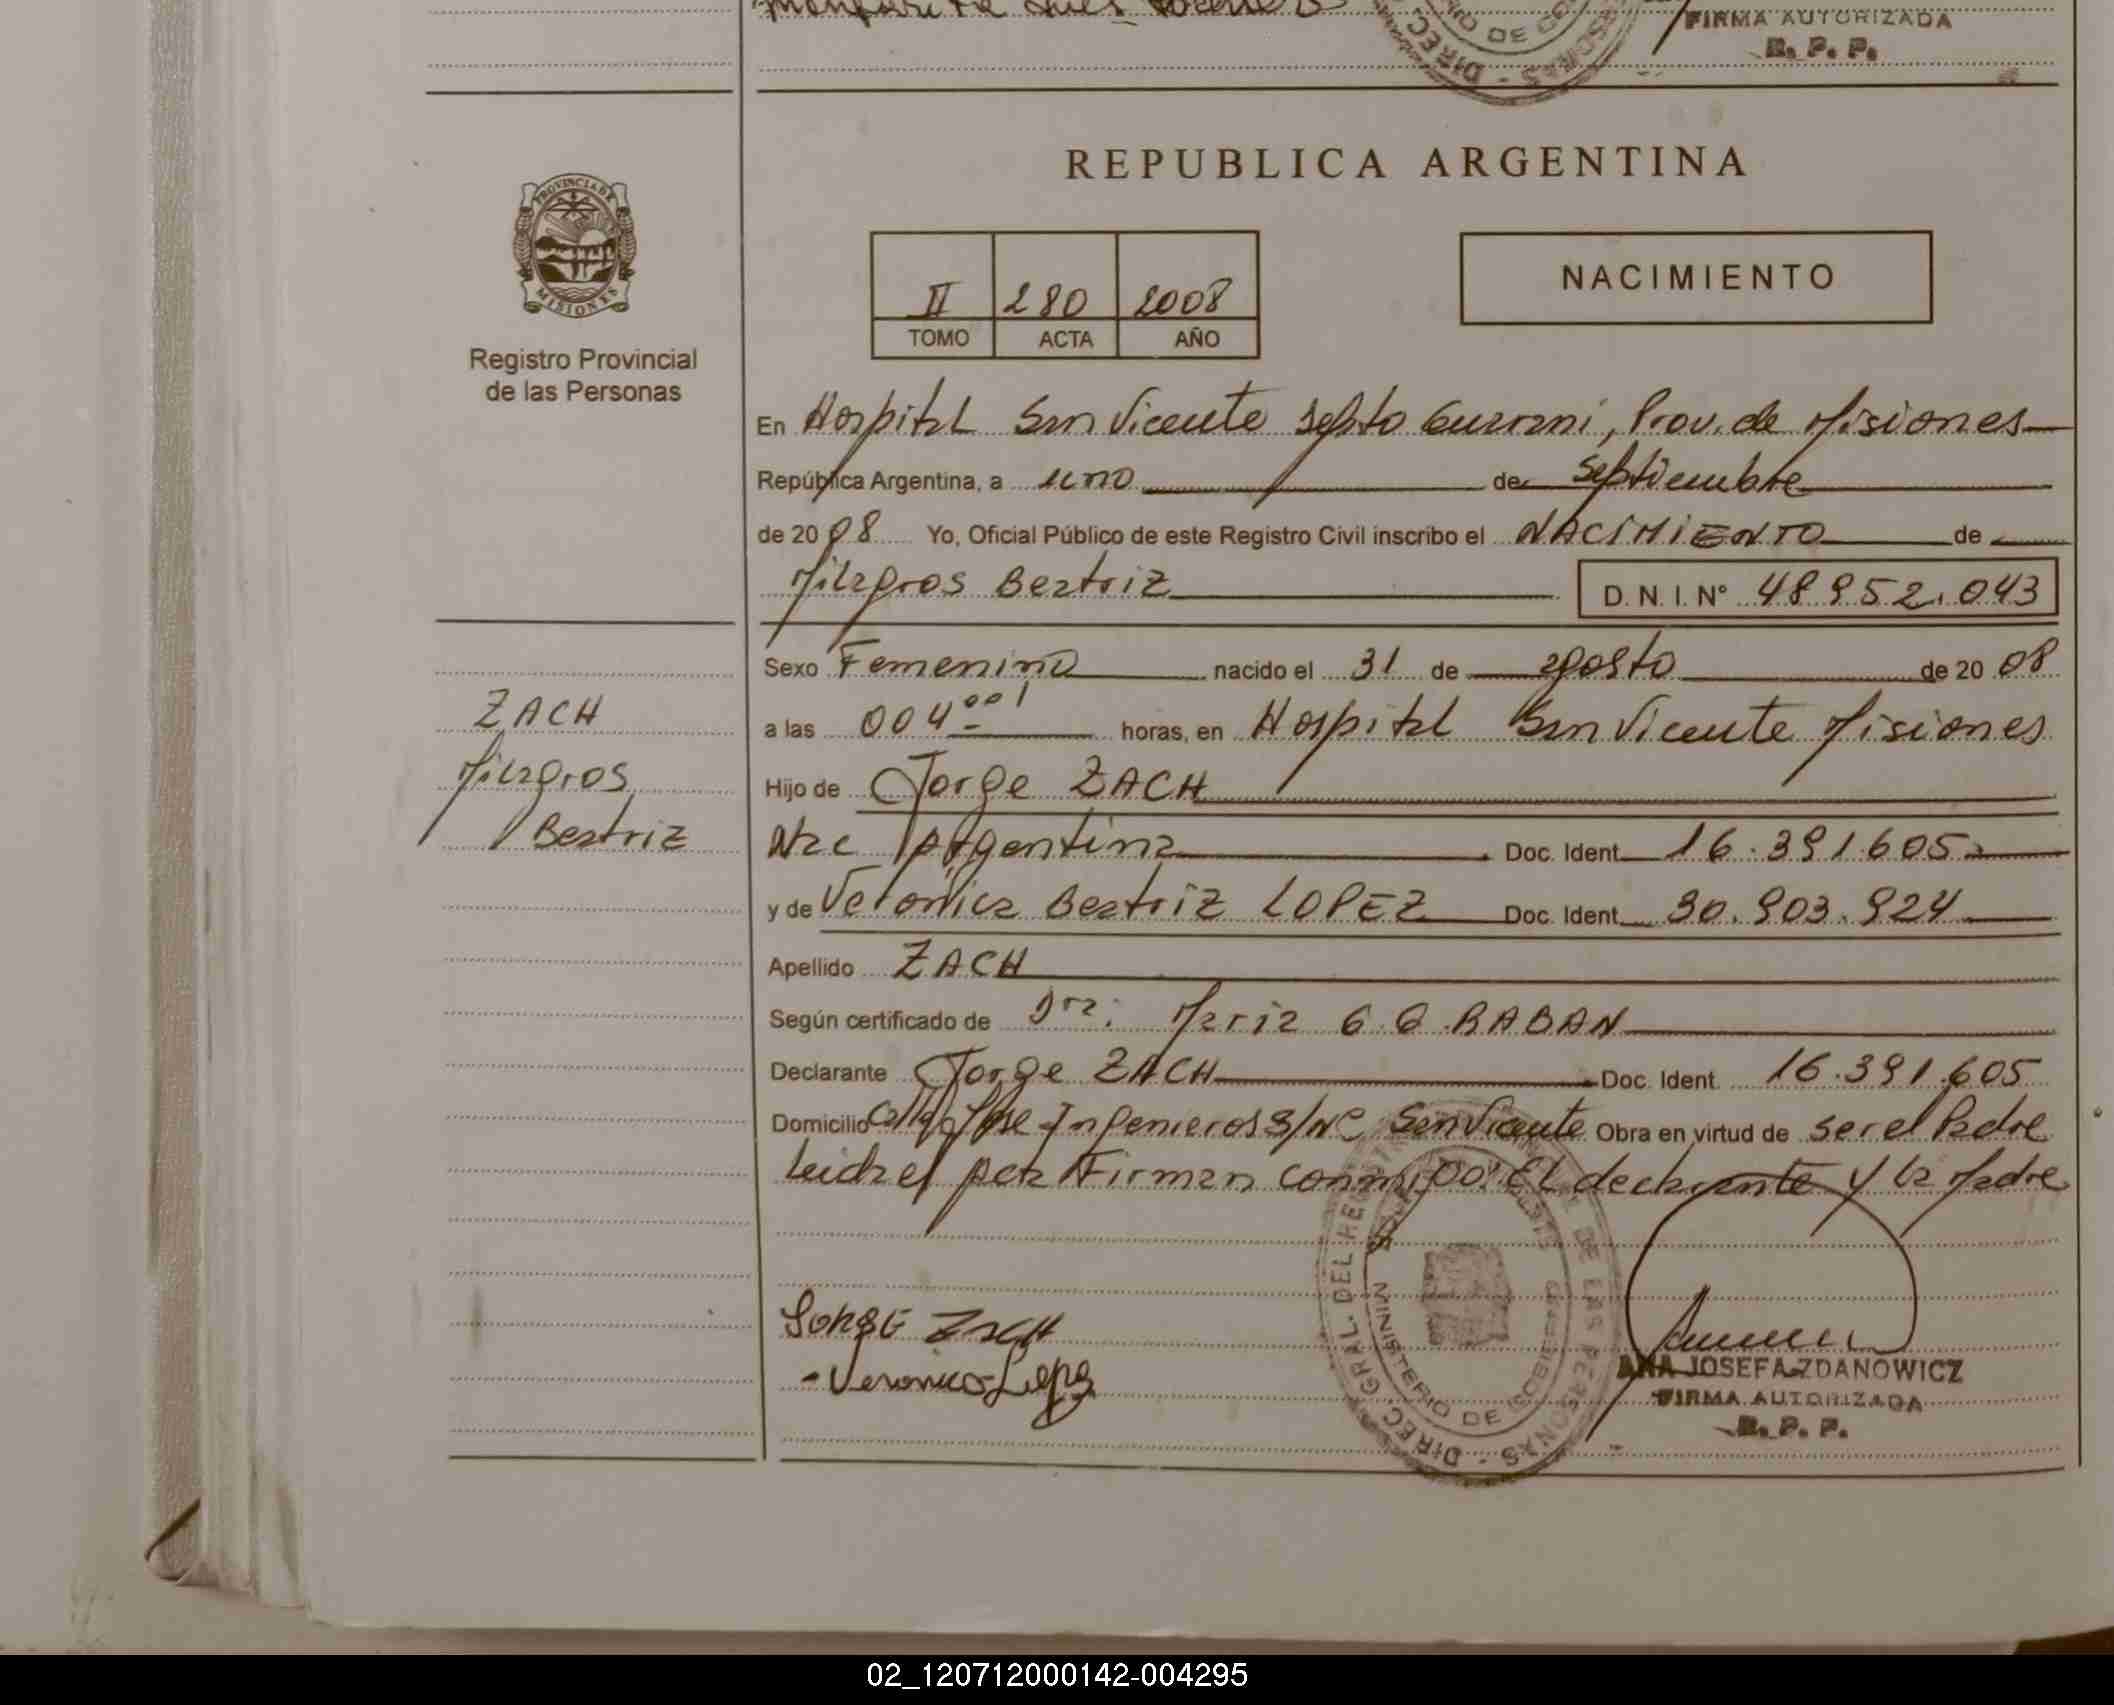 FIRMA AUTORIZADA
R. P. P.
REPUBLICA ARGENTINA
PROVINCIA DE
MISIONES
Registro Provincial
de las Personas
II 280 2008
TOMO ACTA AÑO
NACIMIENTO
En Hospital San Vicente Depto Guarani, Prov. de Misiones
República Argentina, a uno de Septiembre
de 20 08 Yo, Oficial Público de este Registro Civil inscribo el NACIMIENTO de
Milagros Beatriz D. N. I. N° 48 952.043
Sexo Femenino nacido el 31 de agosto de 20 08
ZACH
Milagros
Beatriz
a las 004 horas, en Hospital San Vicente Misiones
Hijo de Jorge ZACH
Nac Argentina Doc. Ident. 16.391.605
y de Veronica Beatriz LOPEZ Doc. Ident. 30.903.924
Apellido ZACH
Según certificado de Dra: Maria G. G. RABAN
Declarante Jorge ZACH Doc. Ident. 16.391.605
Domicilio Jose Ingenieros S/Nº San Vicente Obra en virtud de ser el Padre
Leida el acta Firman conmigo: El declarante y la Madre
JORGE ZACH
Veronica Lopez
DIREC. GRAL. DEL REGISTRO DE LAS PERSONAS
MINISTERIO DE GOBIERNO
ANA JOSEFA ZDANOWICZ
FIRMA AUTORIZADA
R. P. P.
02_120712000142-004295